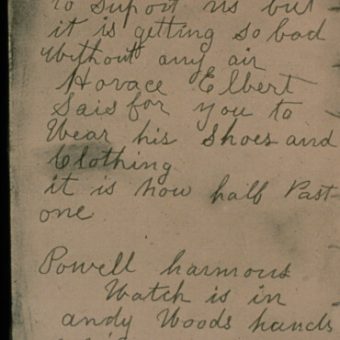 to suport us but
it is getting so bad
without any air
Horace Elbert
Sais for you to
Wear his shoes and
Clothing
it is now half Past
one
Powell harmons
Watch is in
andy Woods hands